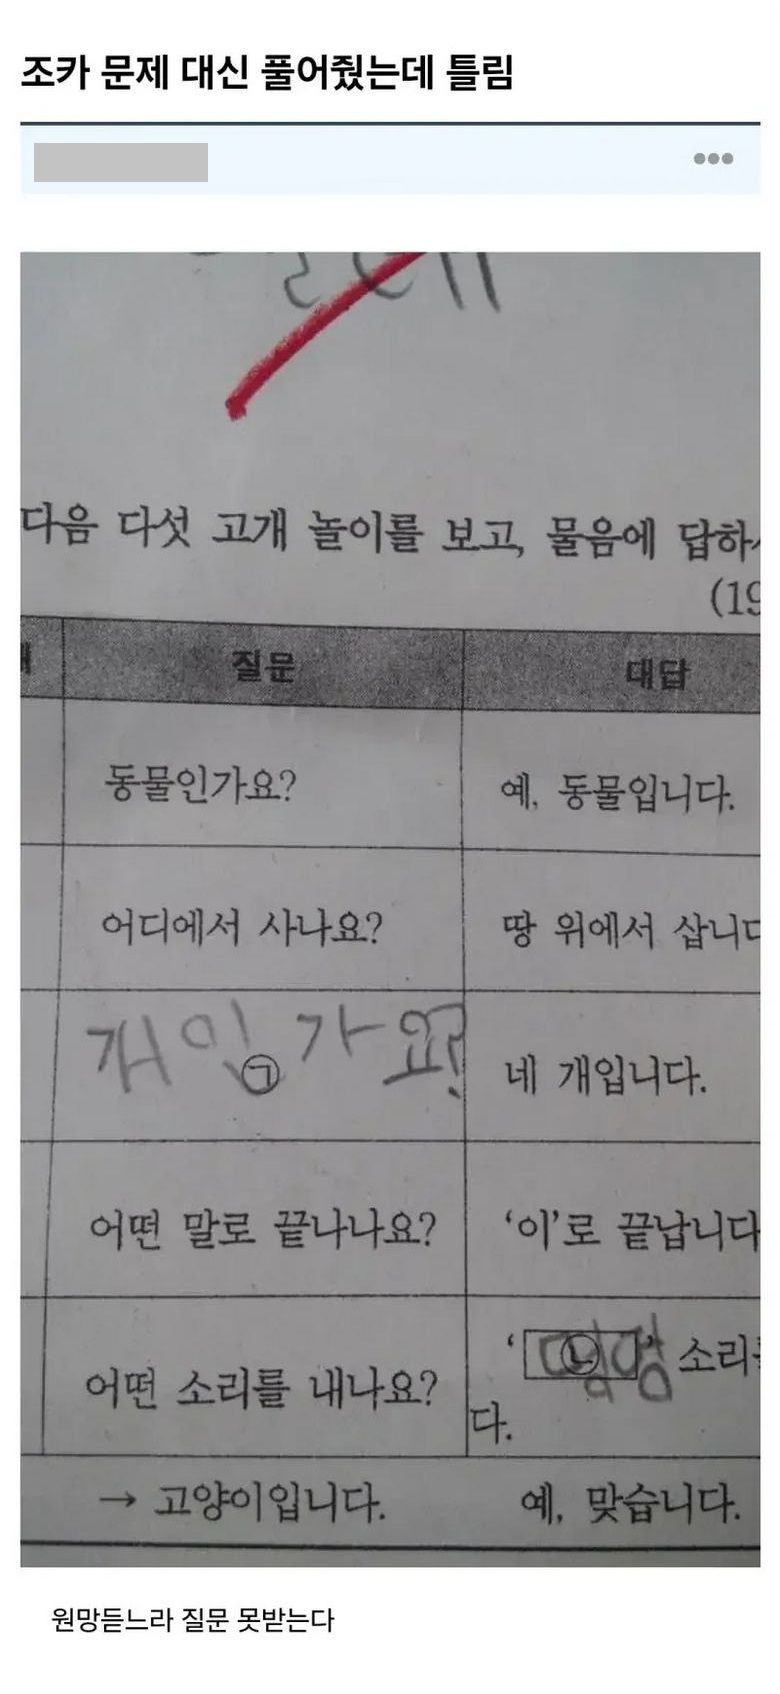 조카 문제 대신 풀어줬는데 틀림
다음 다섯 고개 놀이를 보고, 물음에 답하
(19
질문 대답
동물인가요? 예, 동물입니다.
어디에서 사나요? 땅 위에서 삽니다
개인가요? ㉠ 네 개입니다.
어떤 말로 끝나나요? ‘이’로 끝납니다
어떤 소리를 내나요? ‘ ㉡ ’ 소리
다.
→ 고양이입니다. 예, 맞습니다.
원망듣느라 질문 못받는다